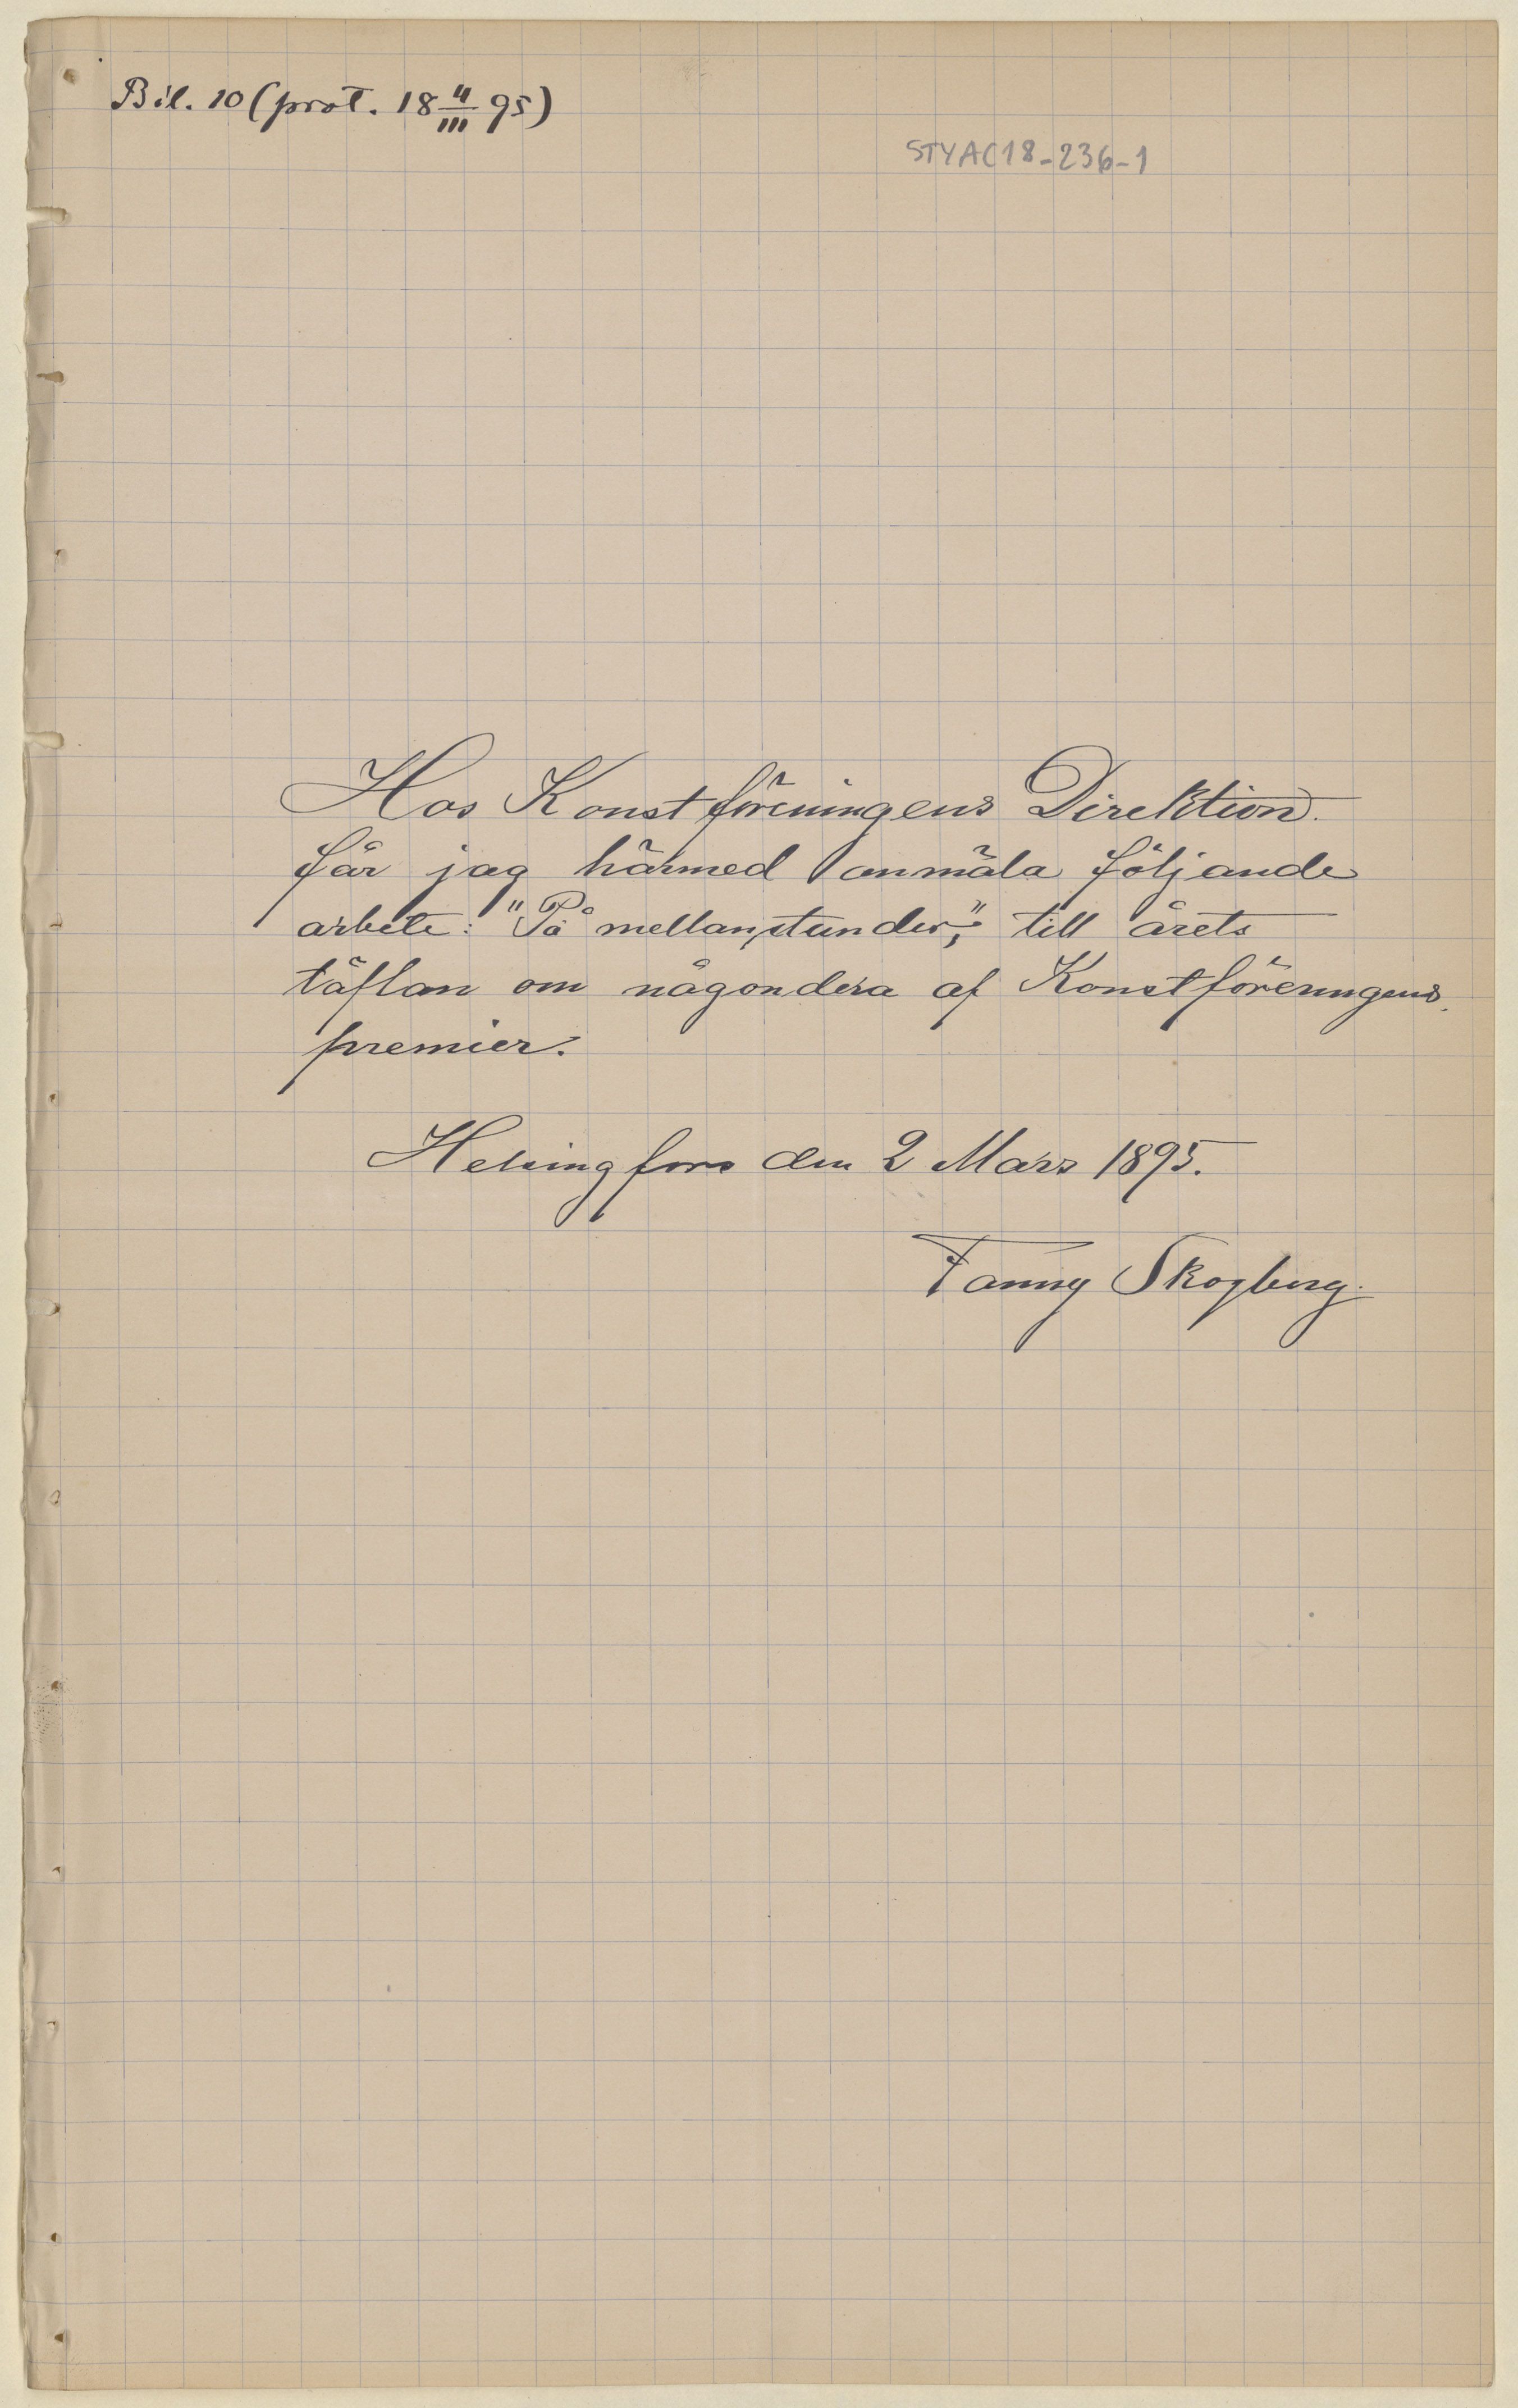 Bil. 10 (prot. 18 4/III 95)
STYAC18-236-1
Hos Konstföreningens Direktion
får jag härmed anmäla följande
arbete: "På mellanstunder", till årets
täflan om någondera af Konstföreningens
premier.
Helsingfors den 2 Mars 1895.
Fanny Skogberg.